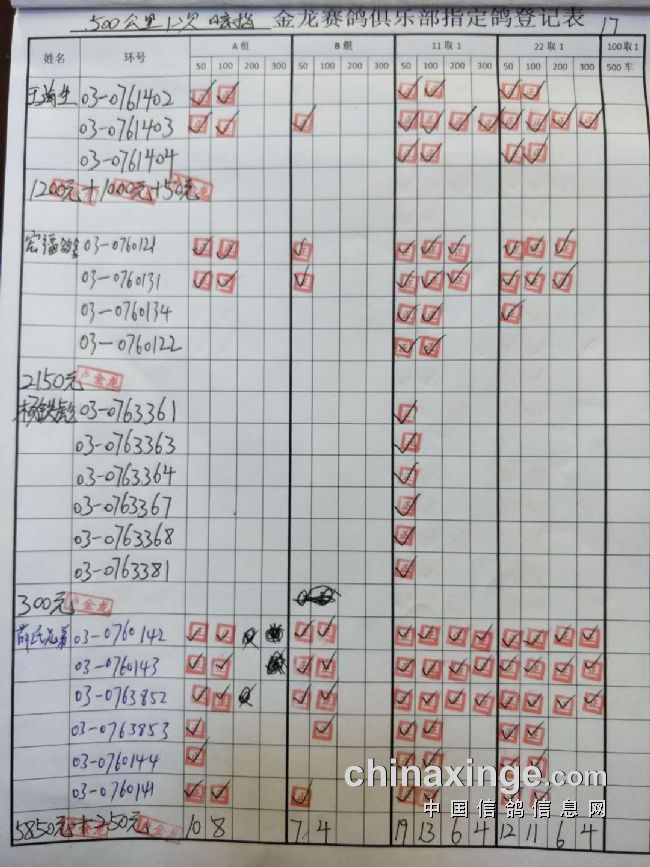 500公里1次 金龙赛鸽俱乐部指定鸽登记表 17
姓名 环号 A组 B组 11取1 22取1 100取1
50 100 200 300 50 100 200 300 50 100 200 300 50 100 200 300 500车
03-0761402
03-0761403
03-0761404
1200元+1000元+50元
宏福鸽舍 03-0760121
03-0760131
03-0760134
03-0760122
2150元 卢金龙
03-0763361
03-0763363
03-0763364
03-0763367
03-0763368
03-0763381
300元 卢金龙
薛氏兄弟 03-0760142
03-0760143
03-0763852
03-0763853
03-0760144
03-0760141
5850元+250元 10 8 7 4 19 13 6 4 12 11 6 4
chinaxinge.com
中国信鸽信息网